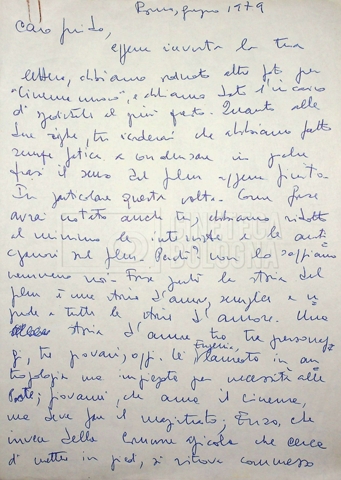 Roma, giugno 1979
Caro Guido,
appena ricevuta la tua
lettera, abbiamo radunato altre foto per
"Cinema nuovo", e abbiamo dato l'incarico
di spedirteli al più presto. Quanto alle
due righe, tu vedrai che abbiamo fatto
sempre fatica a condensare in poche
frasi il senso del film appena finito.
In particolare questa volta. Come forse
avrai notato anche tu, abbiamo ridotto
al minimo le interviste e le anti
cipazioni sul film. Perché? non lo sappiamo
nemmeno noi. Forse perché la storia del
film è una storia d'amore, semplice e u
guale a tutte le storie d'amore. Una
storia d'amore tra tre personag
gi, tre giovani, oggi. Eugenia, laureata in an
tropologia ma impiegata per necessità alle
Poste; Giovanni, che ama il cinema,
ma deve fare il magistrato; Enzo, che
invece della Comune agricola che cerca
di mettere in piedi, si ritrova commesso
CINETECA
BOLOGNA